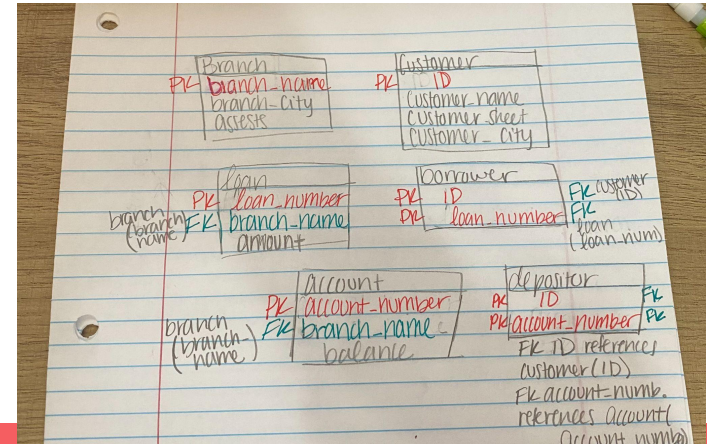 Branch
PK branch_name
branch-city
assests
Customer
PK ID
Customer_name
customer sheet
customer_city
loan
PK loan_number
FK branch-name
amount
branch
(branch
name)
borrower
PK ID
PK loan_number
FK customer
(ID)
FK
loan
(loan_num)
account
PK account_number
FK branch_name
balance
branch
(branch-
name)
depositor
PK ID FK
PK account_number FK
FK ID references
customer (ID)
FK account-numb.
references account(
account numb)